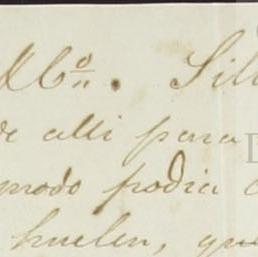 Sil
de alli para
modo podia
huelen, que